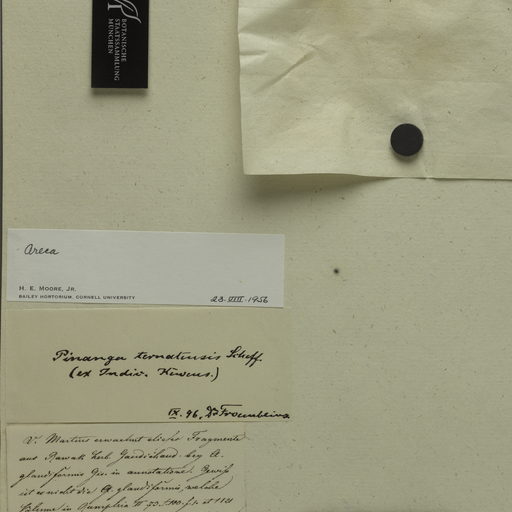 BOTANISCHE
STAATSSAMMLUNG
MÜNCHEN
Areca
H. E. MOORE, JR.
BAILEY HORTORIUM, CORNELL UNIVERSITY
23·VIII·1956
Pinanga ternatensis Scheff.
(ex Indiv. Kewens.)
IX. 96,
V. Martius erwaehnt dieses Fragmente
aus Rawak herb. Gaudichaud bey A.
glandiformis in annotatione. Gewiss
ist es nicht die A. glandiformis, welche
in Rumphia